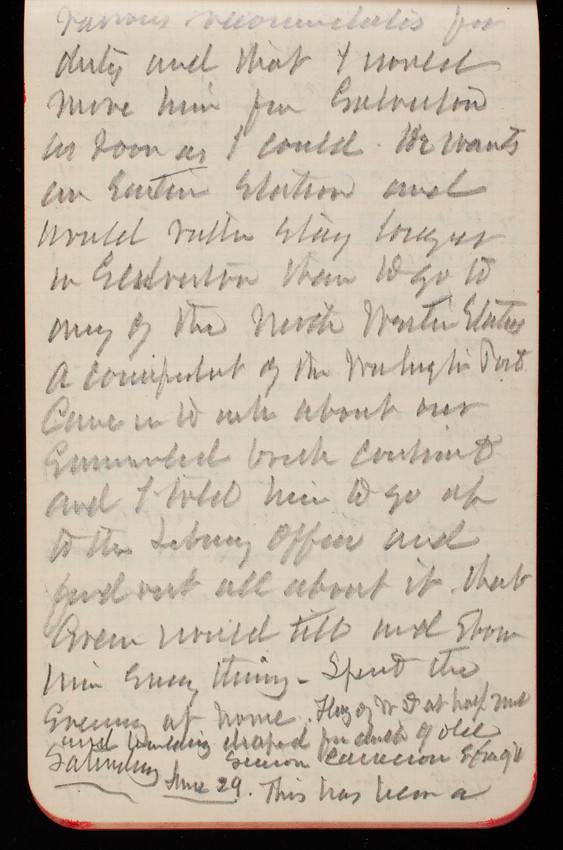 various 
duty and that I would
move him from Galveston
as soon as I could. He wants
an Eastern Station and
would rather stay longer
in Galveston than to go to
any of the North Western States
A correspondent of the Washington Post
Came in to ask about our
brick contract
and I told him to go up
to the Library Office and
find out all about it. that
Green would tell and show
him every thing - Spent the
Evening at home. Flag of W D at half mast
and building draped for death of old
Simon Cameron Ex Secy
Saturday June 29. This has been a